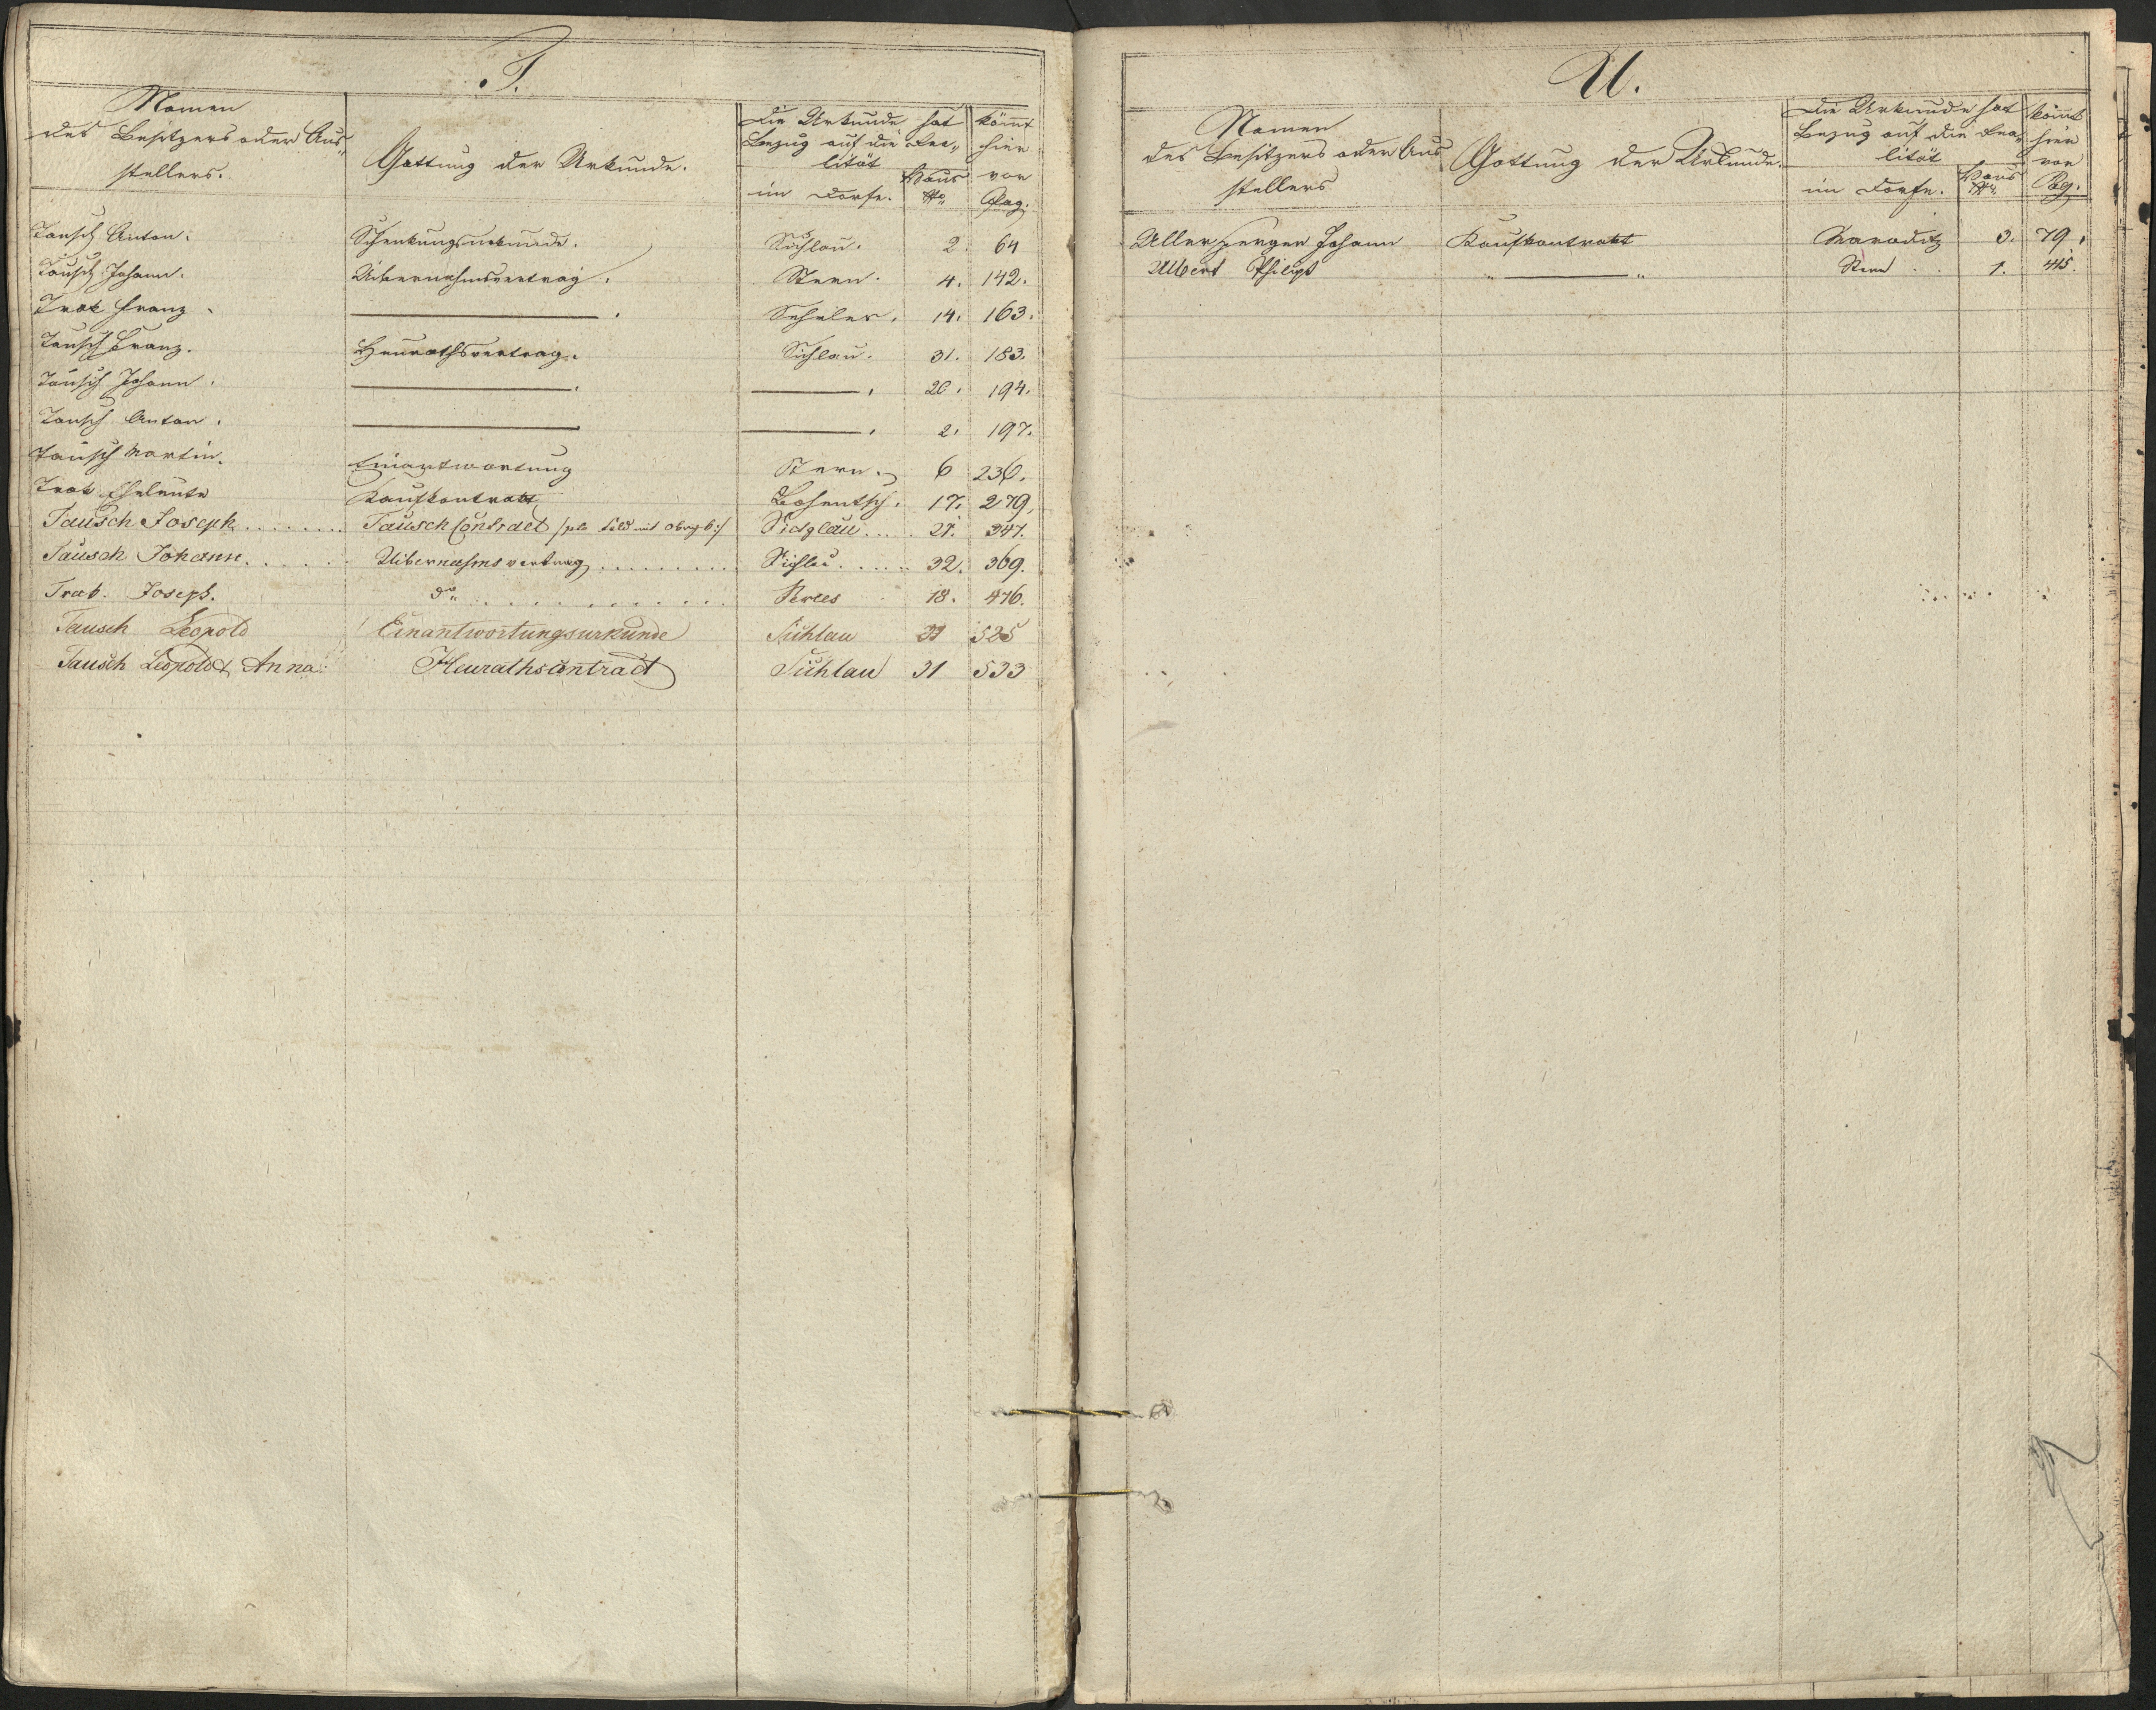 T.
Namen
des Besitzers oder Aus„
stellers.
Gattung der Urkunde.
Die Urkunde hat
Bezug auf die Rea„
lität
im Dorfe.
Haus
Nro
kömt
hier
vor
Pag.
Tausch Anton. Schenkungsurkunde. Sichlau. 2 64
Tausch Johann. Uibernahmsvertrag. Stern. 4. 142.
Trat Franz. ——— . Scheles. 14. 163.
Tausch Franz. Heurathsvertrag. Sichlau. 31. 183.
Tausch Johann. ——— . ——— . 20. 194.
Tausch Anton. ——— ——— . 2. 197.
Tausch Martin. Einantwortung Stern. 6 236.
Trat Eheleute Kaufkontrakt 17. 279,
Tausch Joseph....... Tausch Contract 21. 347.
Tausch Johann...... Uibernahmsvertrag......... Sichlau...... 32. 369.
Trat. Joseph. do. ........... 18. 476.
Tausch Leopold Einantwortungsurkunde Sichlau 31 525
Tausch Leopold & Anna: Heurathscontract Sichlau 31 533
U.
Namen
des Besitzers oder Aus
stellers
Gattung der Urkunde.
Die Urkunde hat
Bezug auf die Rea„
lität
im Dorfe.
Haus
Nro.
kömt
hier
vor
Pag.
Johann Kaufkontrakt 3. 79.
Ulbert Philipp „ ——— „ Stern . . 1. 415.